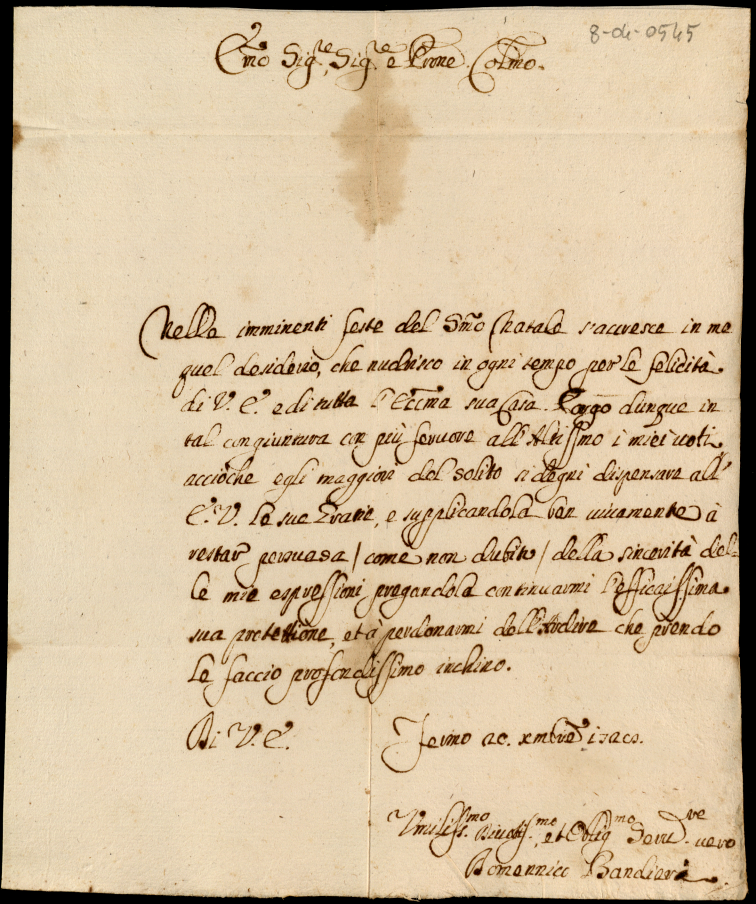 8-04-0545
Emo Sig.re, Sig.re e Prone Colmo.
Nelle imminenti feste del Smo Natale s'accresce in me
quel desiderio, che nudrisco in ogni tempo per le felicità
di V. E. e di tutta l'Eccma sua Casa. Porgo dunque in
tal congiuntura con più fervore all'Altissimo i miei voti,
acciòche egli maggiori del solito si degni dispensare all'
E. V. le sue Grazie, e supplicandola ben vivamente à
restar persuasa / come non dubito / della sincerità del=
le mie espressioni pregandola continuarmi l'efficacissima
sua protettione, et à perdonarmi dell'Ardire che prendo
le faccio profondissimo inchino.
Di V. E.
Fermo 20. xmbre
Umiliss.mo et Oblig.mo Serv.re vero
Domennico Bandiera